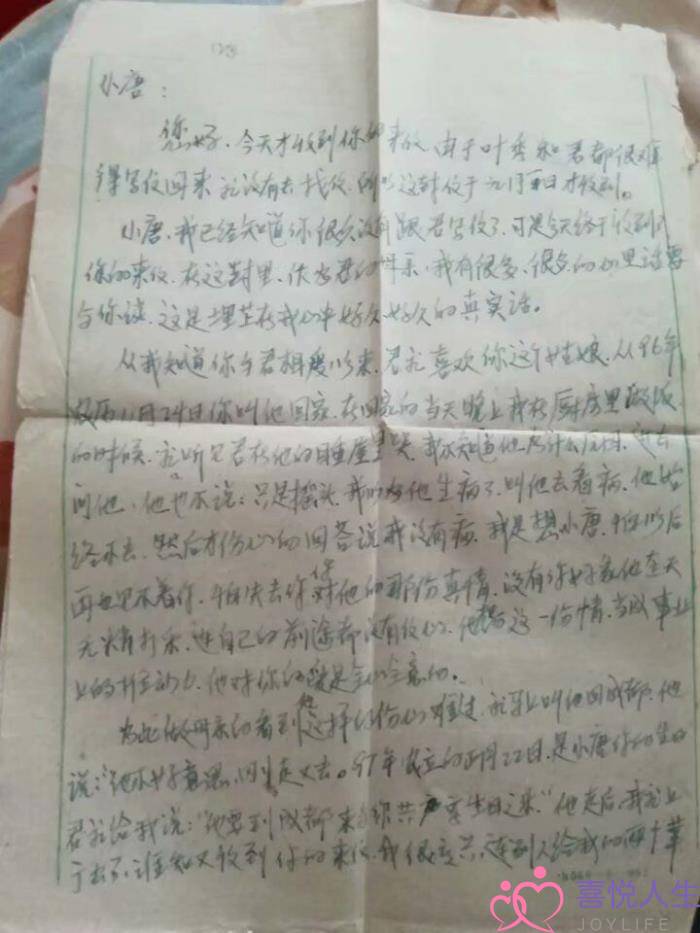 小唐：
您好，今天才收到你的来信，由于叶秀和君都很难
得写信回来，就没有去找信，所以这封信于元月五日才收到。
小唐，我已经知道你很久没有跟君写信了，可是今天终于收到了
你的来信，在这封里，我有很多、很多的心里话要
与你谈，这是埋在我心中好久好久的真实话。
从我知道你与君相处以来，君就喜欢你这个姑娘，从96年
农历11月24日你叫他回家，在回家的当天晚上我在厨房里做饭
的时候，就听见君在他的睡屋里哭，我不知道他为什么原因，进去
问他，他也不说；只是摇头，我以为他生病了，叫他去看病，他始
终不去，然后才伤心的回答说我没有病，我是想小唐，怕以后
再也见不着你，怕失去你对他的那份真情，没有你好象他在天
无精打采，连自己的前途都没有信心，他把这一份情，当成事业
上的推动力，他对你的爱是全心全意的。
为此做母亲的看到他这样的伤心难过，就马上叫他回成都，他
说：“他不好意思，回来走又去。97年农历的正月22日，是小唐你的生日
君就给我说：“他要到成都来与你共度生日之乐”他走后，我就上
广去了，谁知又收到你的来信，我很高兴，连别人给我的两个苹
喜悦人生
JOYLIFE